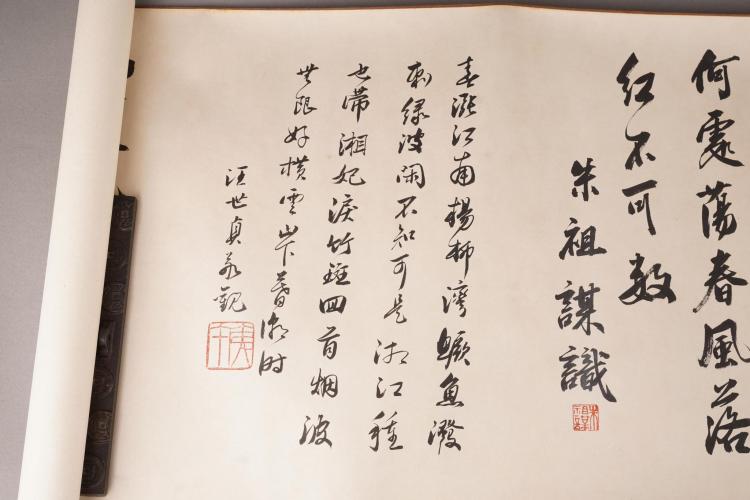 何處蕩春風落
紅不可數
朱祖謀識
春漲江南楊柳灣鱖魚潑
刺綠波閑不知可是湘江種
也帶湘妃淚竹斑四首烟波
無限好橫雲山下暮潮時
汪世貞敬觀